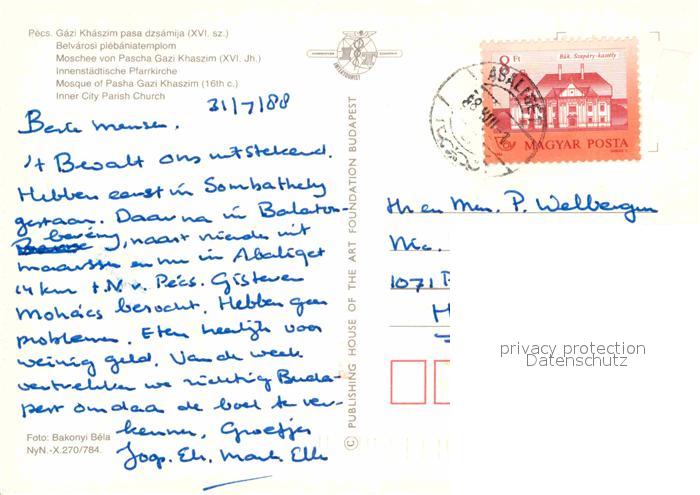 Pécs. Gázi Khászim pasa dzsámija (XVI. sz.)
Belvárosi plébániatemplom
Moschee von Pascha Gazi Khaszim (XVI. Jh.)
Innenstädtische Pfarrkirche
Mosque of Pasha Gazi Khaszim (16th c.)
Inner City Parish Church
31/7/88
Beste mensen,
't Bevalt ons uitstekend.
Hebben eerst in Sombathely
gestaan. Daarna in Balaton-
berény, naast vrienden uit
Maarssen en nu in Abaliget
14 km t.N.v. Pécs. Gisteren
Mohács bezocht. Hebben geen
problemen. Eten heerlijk voor
weinig geld. Van de week
vertrekken we richting Buda-
pest om daar de boel te ver-
kennen. Groetjes
Joop, Els, Mark Elle
Foto: Bakonyi Béla
NyN.-X.270/784.
© PUBLISHING HOUSE OF THE ART FOUNDATION BUDAPEST
8 Ft
Bük. Szapáry-kastély
MAGYAR POSTA
ABALIGET
Hr en Mevr. P. Welbergen
Nic.
1071
H
privacy protection
Datenschutz